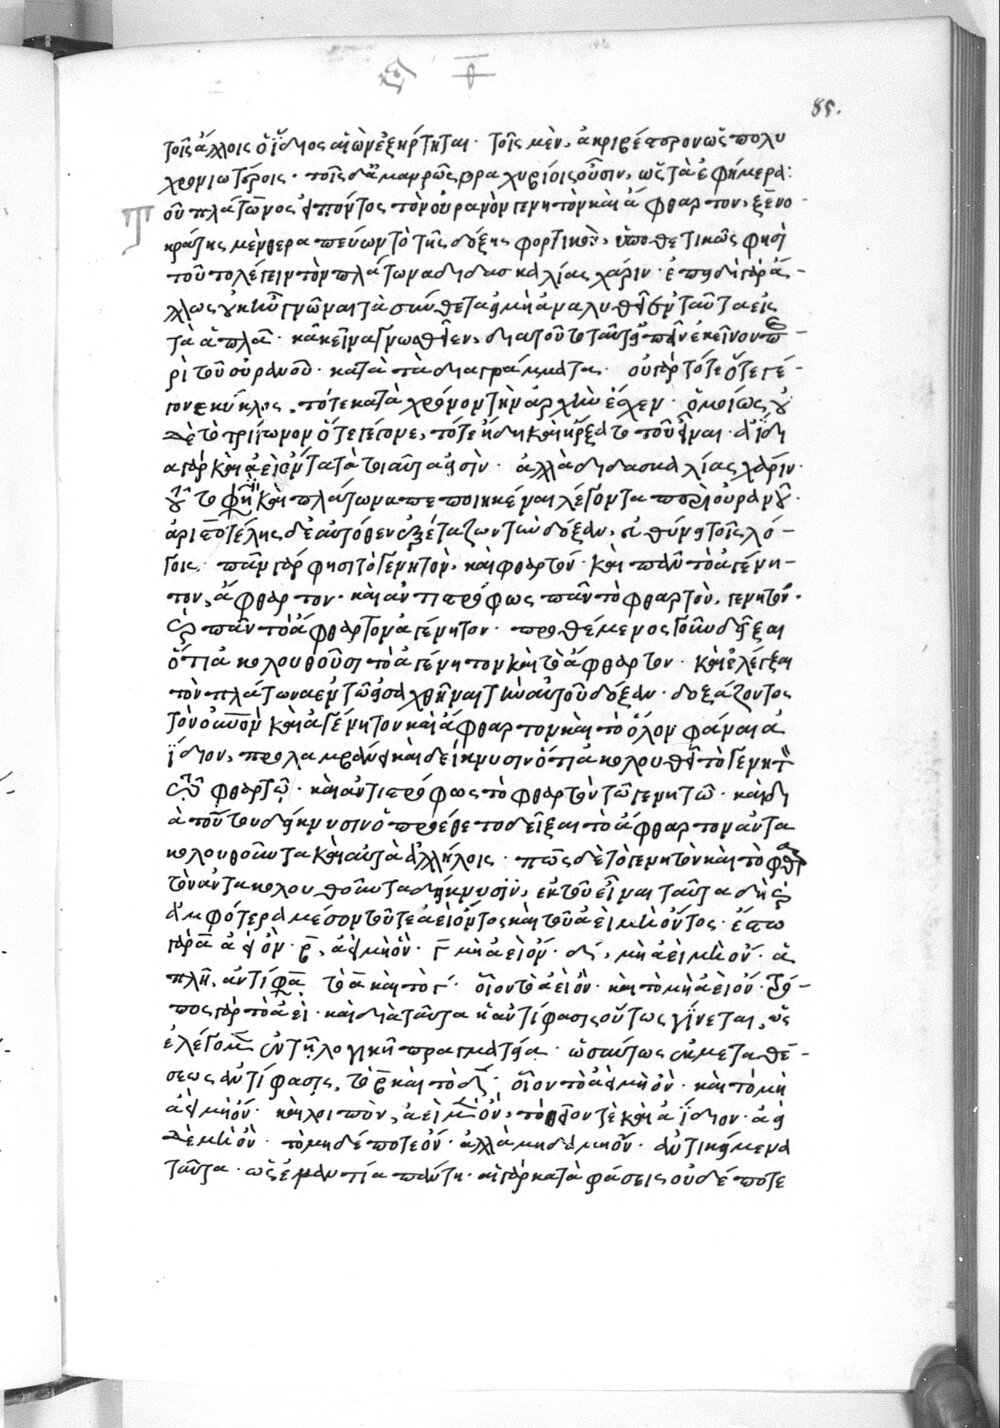 85.
τοῖς ἄλλοις ὁ ἴδιος αἰὼν ἐξήρτηται· τοῖς μὲν, ἀκριβέστερον ὡς πολυ
χρονιωτέροις· τοῖς δὲ ἀμαυρῶς βραχυβίοις οὖσιν, ὡς τὰ ἐφήμερα:
Τοῦ πλάτωνος εἰπόντος τὸν οὐρανὸν γενητὸν καὶ ἄφθαρτον, ξενο
κράτης μὲν θεραπεύων τὸ τῆς δόξης φορτικὸν, ὑποθετικῶς φησὶ
τοῦτο λέγειν τὸν πλάτωνα διδασκαλίας χάριν· ἐπειδὴ γὰρ ἄλ-
λως οὐκ ἦν γνῶναι τὰ σύνθετα εἰ μὴ ἀναλυθείη ταῦτα εἰς
τὰ ἁπλᾶ· κἀκεῖνα γνωσθεῖεν, διὰ τοῦτο ταῦτα εἰπεῖν ἐκεῖνον πε-
ρὶ τοῦ οὐρανοῦ· κατὰ τὰ διαγράμματα· οὐ γὰρ τότε ὅτε γέ-
γονε κύκλος, τότε κατὰ χρόνον τὴν ἀρχὴν ἔσχεν· ὁμοίως οὐ
δὲ τὸ τρίγωνον ὅτε γέγονε, τότε ἤδη καὶ ἤρξατο τοῦ εἶναι· ἀΐδι
α γὰρ καὶ ἀεὶ ὄντα τὰ τοιαῦτα εἰσὶν· ἀλλὰ διδασκαλίας χάριν·
οὕτω φησὶ καὶ πλάτωνα πεποιηκέναι λέγοντα περὶ οὐρανοῦ·
ἀριστοτέλης δὲ αὐτόθεν ἐξετάζων τὴν δόξαν, εὐθύνει τοῖς λό-
γοις· πᾶν γάρ φησι τὸ γενητὸν, καὶ φθαρτόν· καὶ πᾶν τὸ ἀγένη-
τον, ἄφθαρτον· καὶ ἀντιστρόφως πᾶν τὸ φθαρτὸν, γενητόν·
καὶ πᾶν τὸ ἄφθαρτον ἀγένητον· προθέμενος γοῦν δεῖξαι
ὅτι ἀκολουθοῦσι τὸ ἀγένητον καὶ τὸ ἄφθαρτον· καὶ ἐλέγξαι
τὸν πλάτωνα ἐν τῷ εἰσαχθῆναι τὴν αὐτοῦ δόξαν· δοξάζοντος
τὸν οὐρανὸν καὶ ἀγένητον καὶ ἄφθαρτον καὶ τὸ ὅλον φάναι ἀ
ΐδιον, προλαμβάνει καὶ δείκνυσιν ὅτι ἀκολουθεῖ τὸ γενητὸν
τῷ φθαρτῷ· καὶ ἀντιστρόφως τὸ φθαρτὸν τῷ γενητῷ· καὶ δι
ὰ τούτου δείκνυσιν ὃ προέθετο δεῖξαι τὸ ἄφθαρτον ἀντα
κολουθοῦντα καὶ αὐτὰ ἀλλήλοις· πῶς δὲ τὸ γενητὸν καὶ τὸ φθαρ
τὸν ἀντακολουθοῦντα δείκνυσιν, ἐκ τοῦ εἶναι ταῦτα δὴ καὶ
ἀμφότερα μέσον τοῦ τε ἀεὶ ὄντος καὶ τοῦ ἀεὶ μὴ ὄντος· ἔστω
γὰρ ᾱ ἀεὶ ὄν· β̄, ἀεὶ μὴ ὄν· γ̄ μὴ ἀεὶ ὄν· δ̄, μὴ ἀεὶ μὴ ὄν· ἁ
πλῆ, ἀντίφασις τὸ ᾱ καὶ τὸ γ̄· οἷον τὸ ἀεὶ ὂν· καὶ τὸ μὴ ἀεὶ ὄν· τρό-
πος γὰρ τὸ ἀεὶ· καὶ διὰ ταῦτα ἡ ἀντίφασις οὕτως γίνεται, ὡς
ἐλέγομεν ἐν τῇ λογικῇ πραγματείᾳ· ὡσαύτως ἐκ μεταθέ-
σεως ἀντίφασις, τὸ β̄ καὶ τὸ δ̄· οἷον τὸ ἀεὶ μὴ ὂν· καὶ τὸ μὴ
ἀεὶ μὴ ὄν· καὶ λοιπὸν, ἀεὶ μὲν ὂν, τὸ ὄν τε καὶ ἀΐδιον· ἀεὶ
δὲ μὴ ὂν· τὸ μηδέποτε ὂν· ἀλλὰ μηδαμῆ ὄν· ἀντικείμενα
ταῦτα· ὡς ἐναντία πάντη· αἱ γὰρ κατὰ φάσεις οὐδέποτε